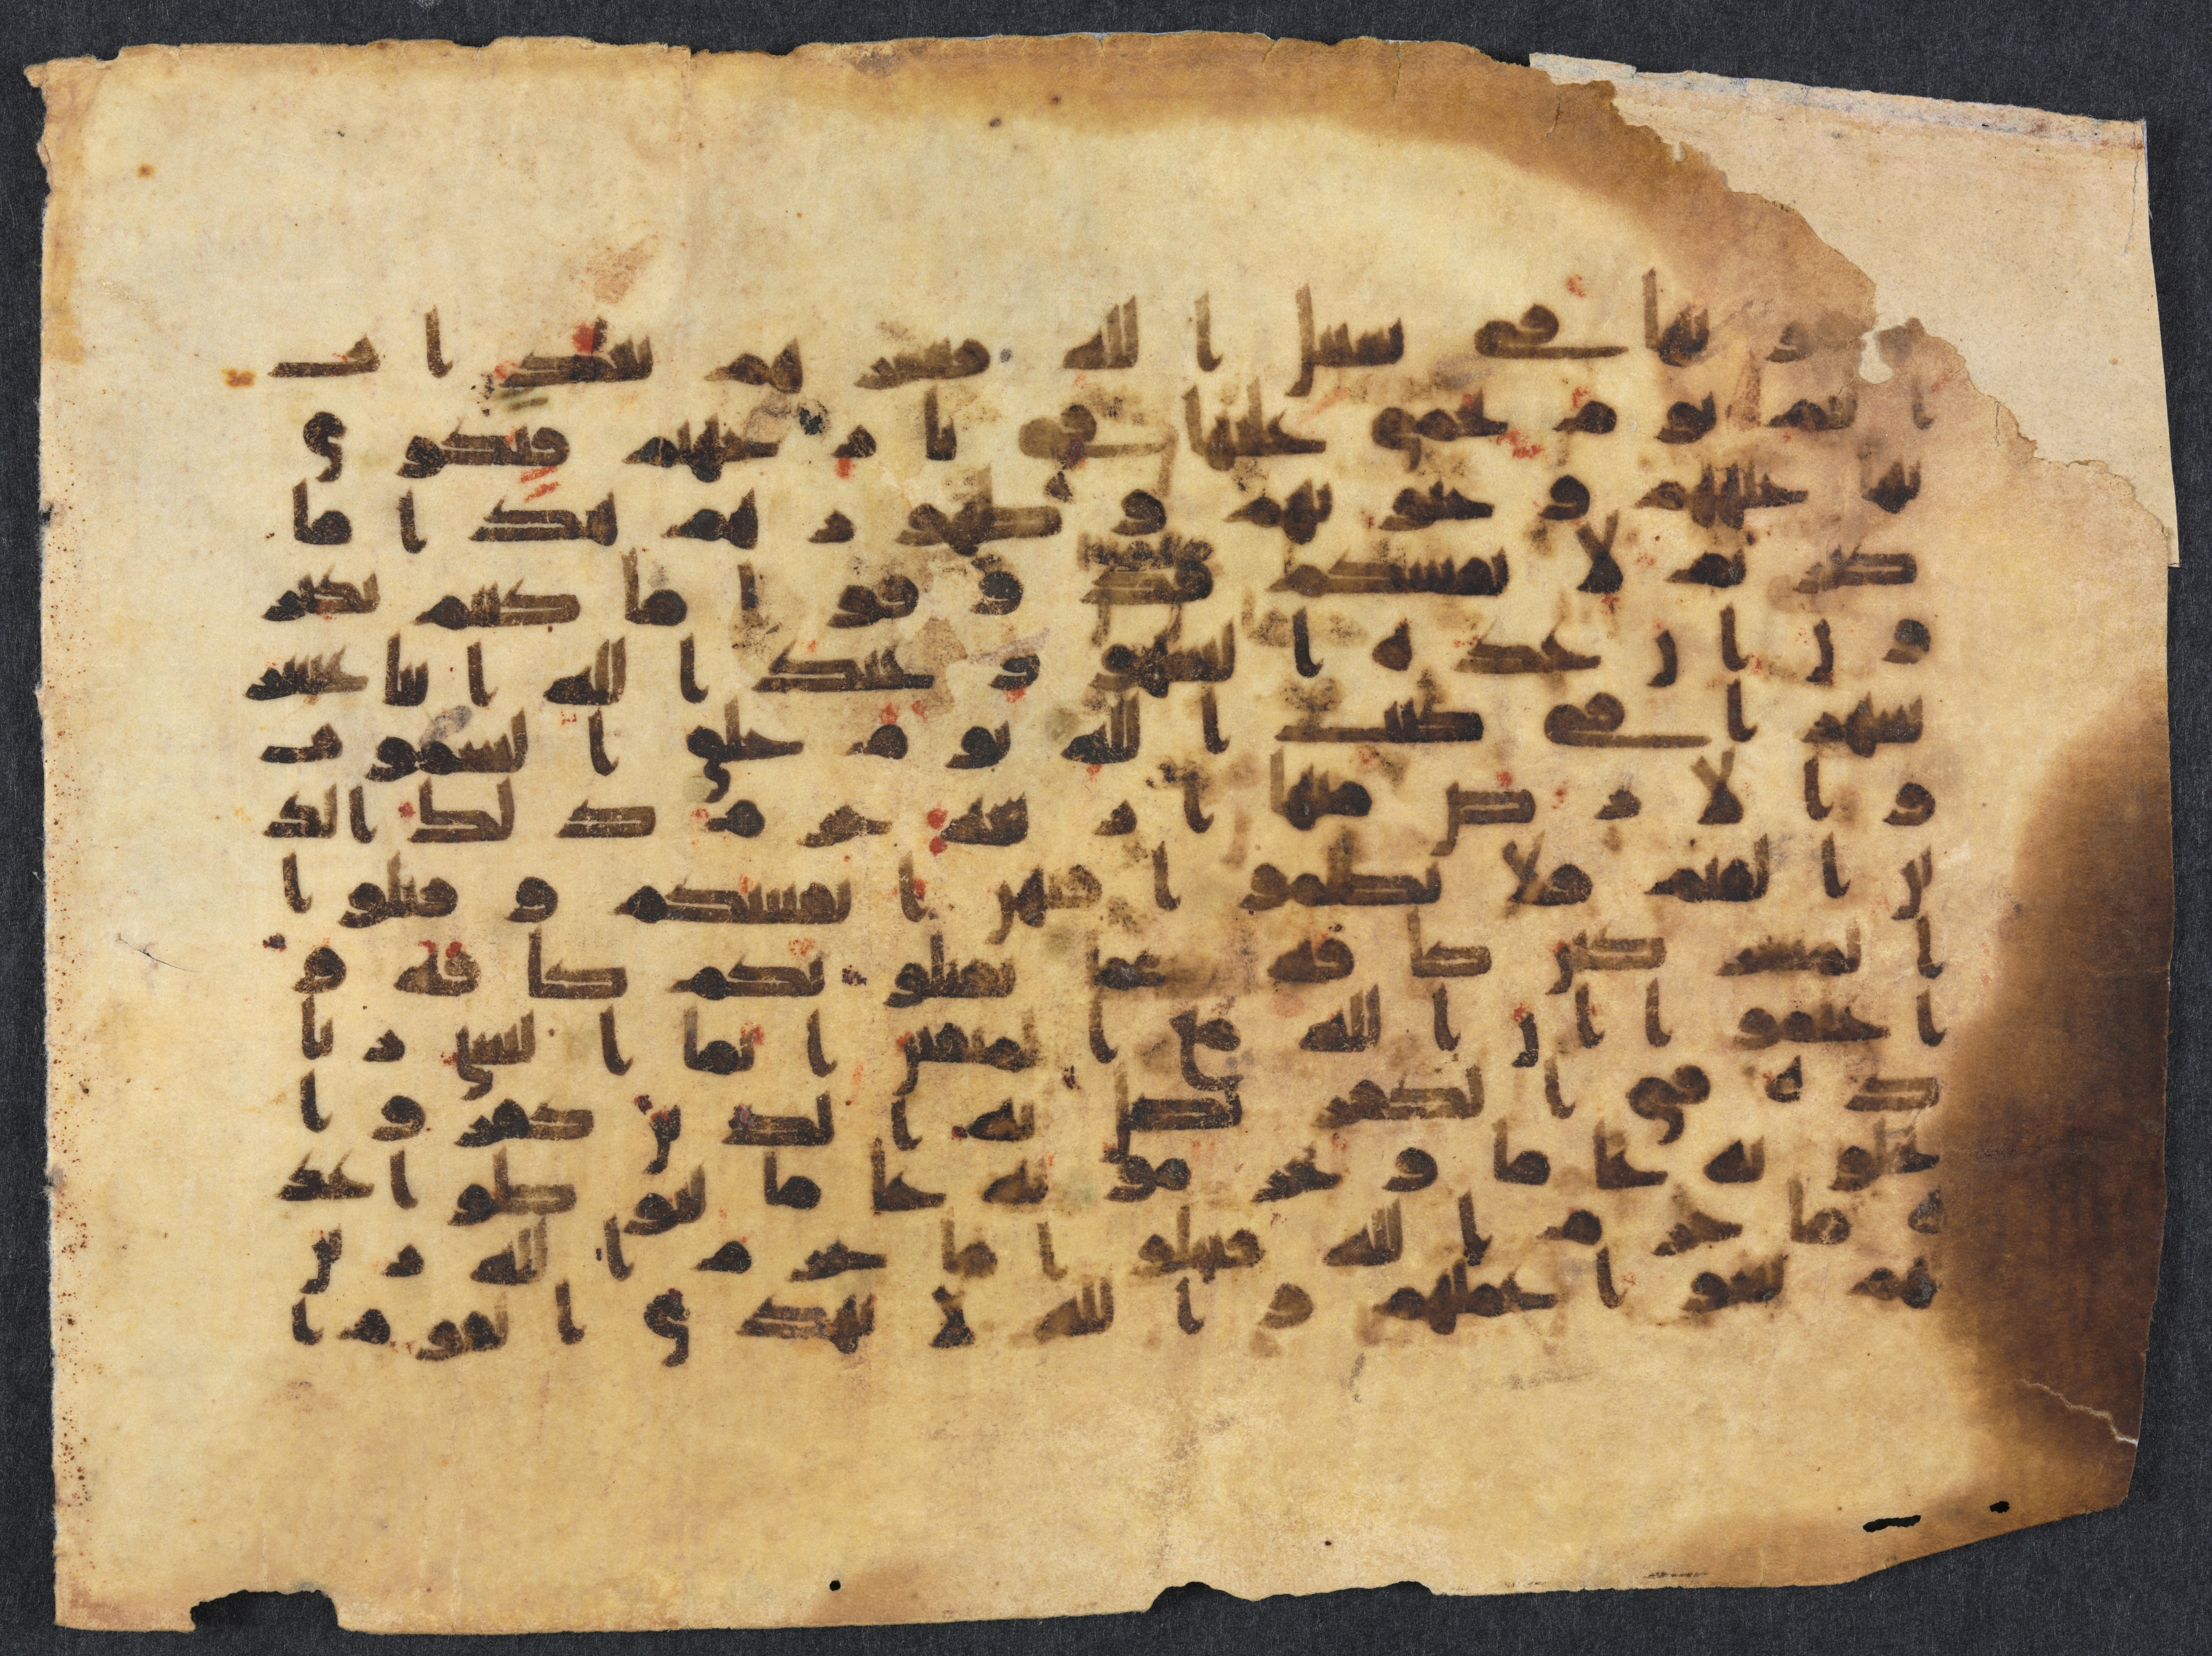 قونها في سبيل الله فبشرهم بعذاب
اليم يوم يحمى عليها في نار جهنم فتكوى
بها جباههم وجنوبهم وظهورهم هذا ما
كنزتم لانفسكم فذوقوا ما كنتم تكنز
ون ان عدة الشهور عند الله اثنا عشر
شهرا في كتب الله يوم خلق السموت
والارض منها اربعة حرم ذلك الد
ين القيم فلا تظلموا فيهن انفسكم وقتلوا
المشركين كافة كما يقتلونكم كافة و
اعلموا ان الله مع المتقين انما النسي زيا
دة في الكفر يضل به الذين كفروا
يحلونه عاما ويحرمونه عاما ليوطوا عد
ة ما حرم الله فيحلوا ما حرم الله زين
لهم سو اعملهم والله لا يهدي القوم ا